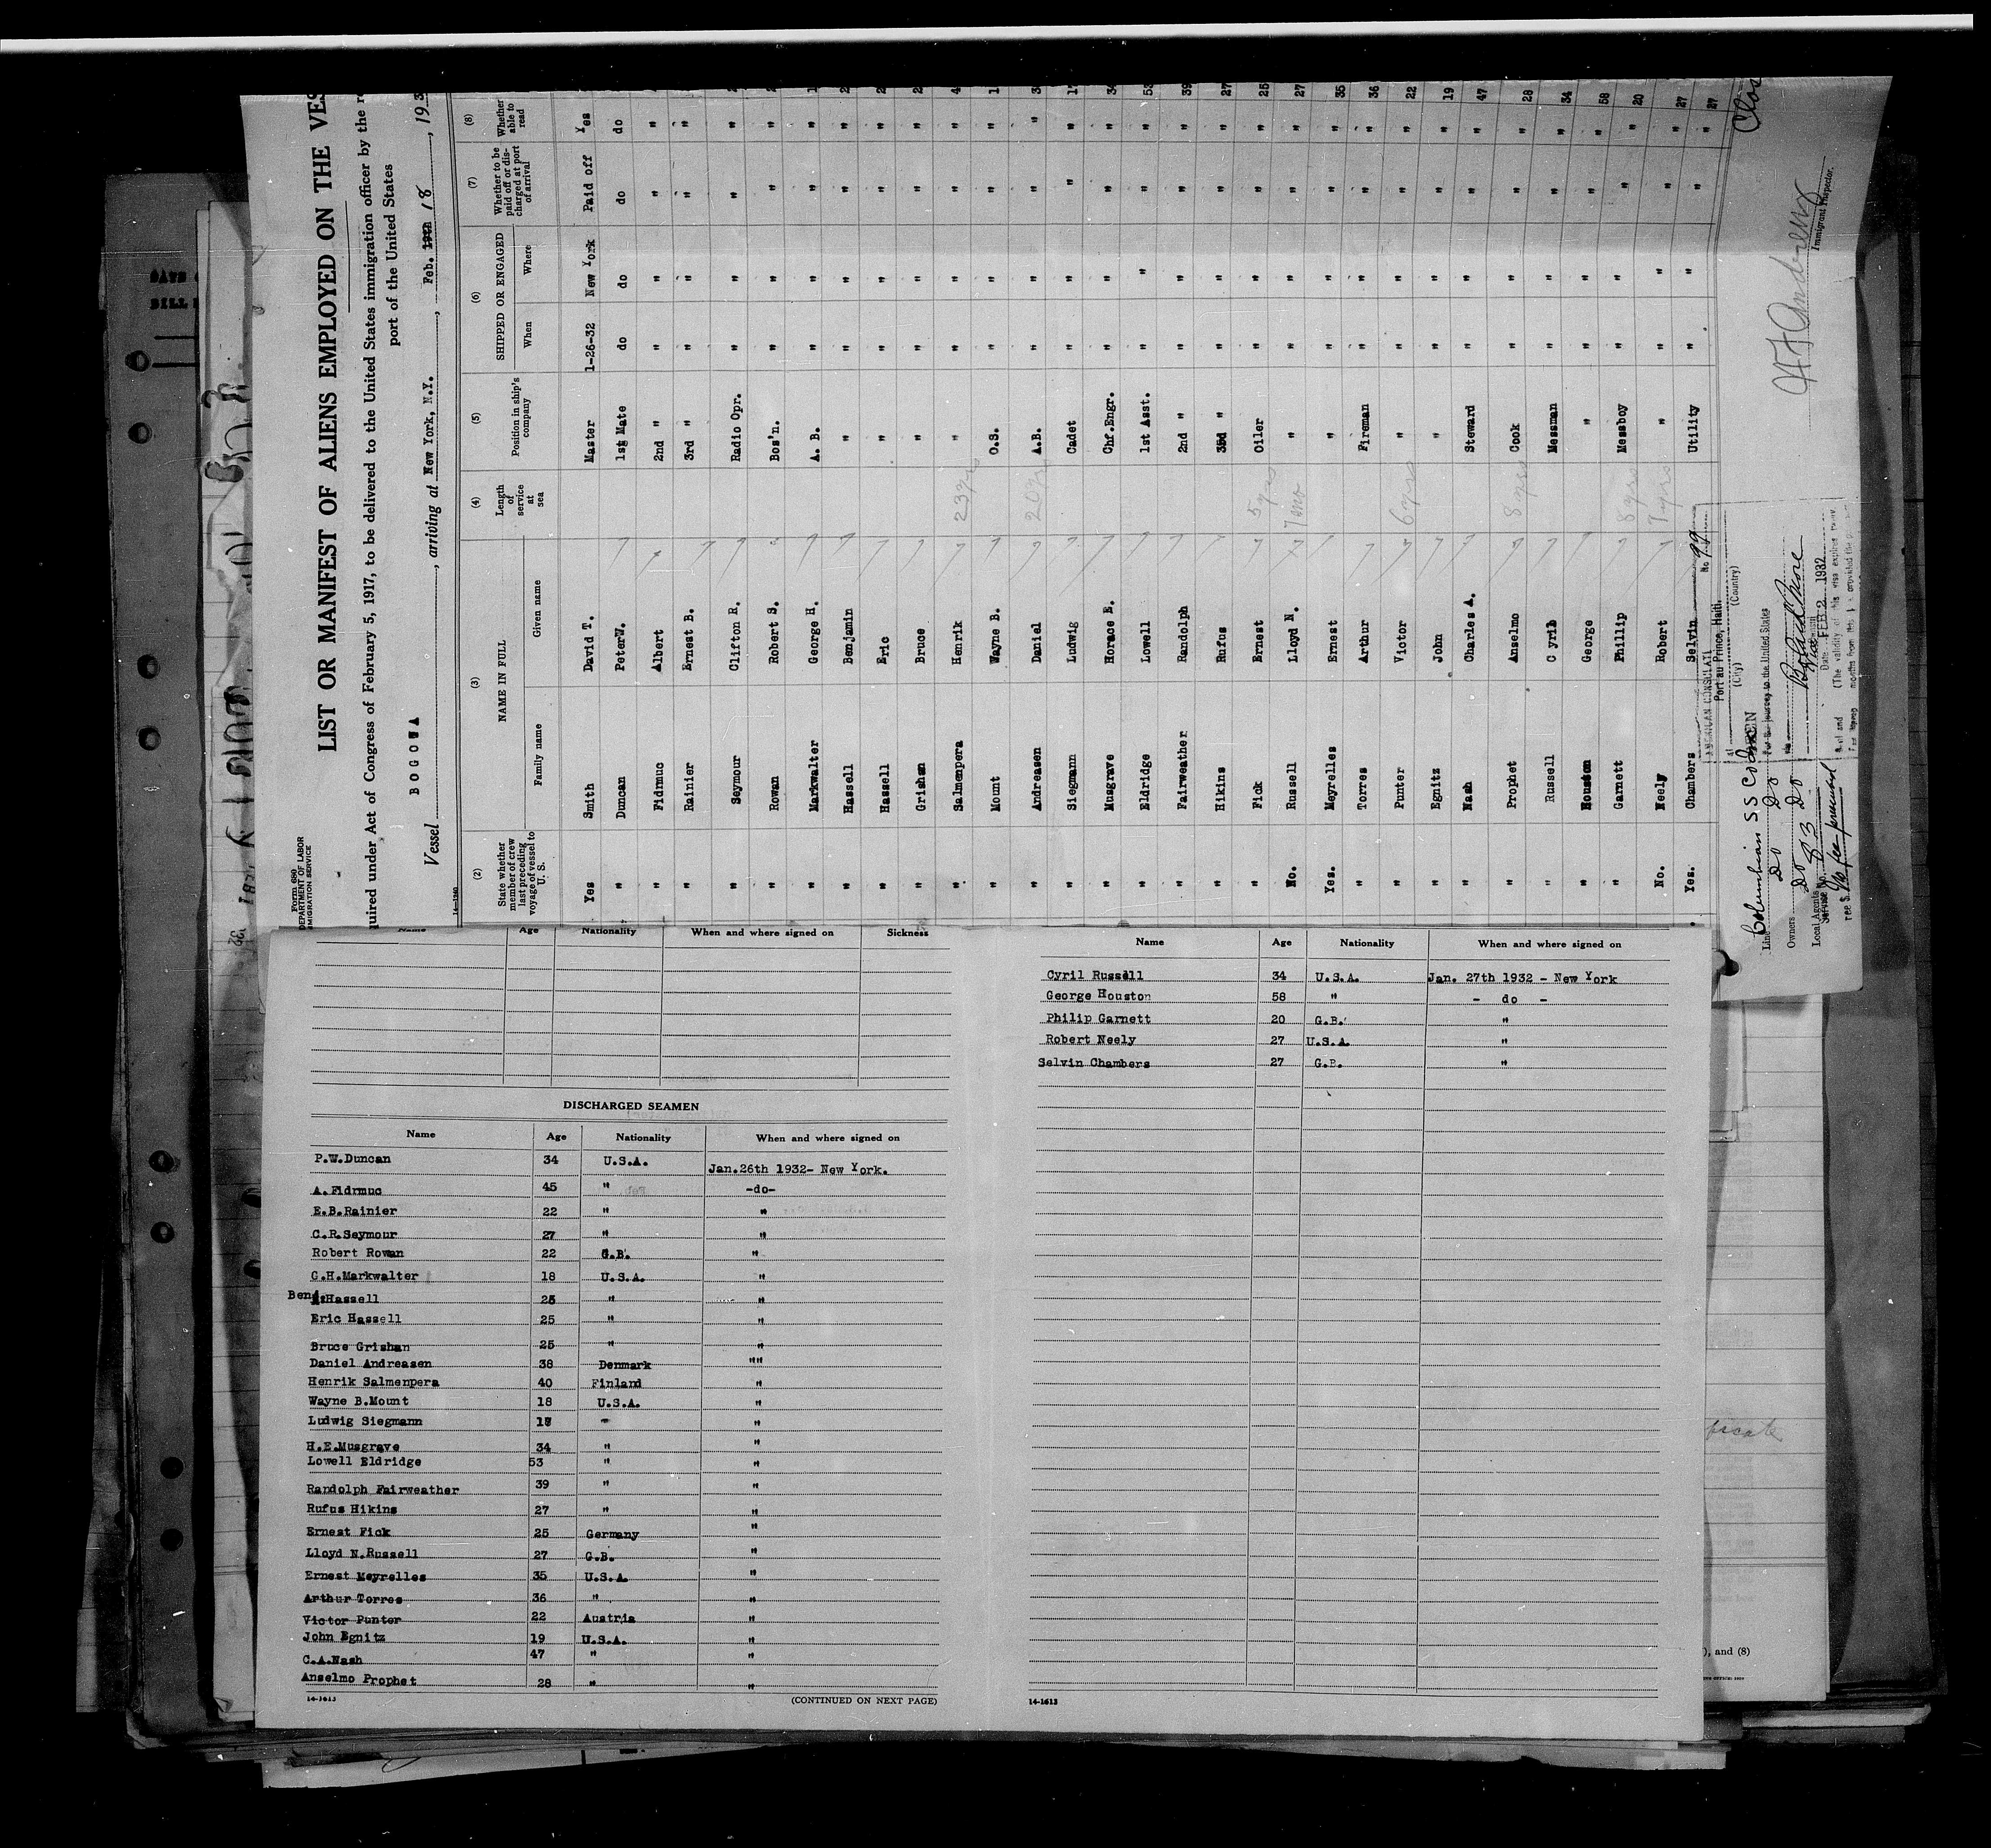 Form 680
DEPARTMENT OF LABOR
MIGRATION SERVICE
LIST OR MANIFEST OF ALIENS EMPLOYED ON THE VES
quired under Act of Congress of February 5, 1917, to be delivered to the United States immigration officer by the r
port of the United States
Vessel BOGOWA, arriving at New York, N.Y., Feb. 18, 193
(2) (3) (4) (5) (6) (7) (8)
State whether member of crew last preceding voyage of vessel to U. S. NAME IN FULL Family name Given name Length of service at sea Position in ship's company SHIPPED OR ENGAGED When Where Whether to be paid off or discharged at port of arrival Whether able to read
Yes Smith David T. Master 1-26-32 New York Paid off Yes
" Duncan PeterW. 1st Mate do do do do
" Fidrmuc Albert 2nd " " " " "
" Rainier Ernest B. 3rd " " " " "
" Seymour Clifton R. Radio Opr. " " " "
" Rowan Robert S. Bos'n. " " " "
" Markwalter George H. A. B. " " " "
" Hassell Benjamin " " " " "
" Hassell Eric " " " " "
" Grishan Bruce " " " " "
" Salmenpera Henrik 23 yrs " " " " " 4
" Mount Wayne B. O.S. " " " " 1
" Andreasen Daniel 20 yrs A.B. " " " " 3
" Siegmann Ludwig Cadet " " " " 17
" Musgrave Horace E. Chf.Engr. " " " " 34
" Eldridge Lowell 1st Asst. " " " " 53
" Fairweather Randolph 2nd " " " " " 39
" Hikins Rufus 3rd " " " " " 27
" Fick Ernest 5 yrs Oiler " " " " 25
No. Russell Lloyd N. 7 mo " " " " " 27
Yes. Meyrelles Ernest " " " " " 35
" Torres Arthur Fireman " " " " 36
" Punter Victor 6 yrs " " " " " 22
" Egnitz John " " " " " 19
" Nash Charles A. Steward " " " " 47
" Prophet Anselmo 8 yrs Cook " " " " 28
" Russell Cyril Messman " " " " 34
" Houston George " " " " " 58
" Garnett Phillip 8 yrs Messboy " " " " 20
No. Neely Robert 7 yrs " " " " " 27
Yes. Chambers Selvin Utility " " " " 27
AMERICAN CONSULATE
No 99
Port au Prince, Haiti.
(City) (Country)
For the journey to the United States
Date FEB 2 1932
(The validity of this visa expires
Line Columbian S S Co
Owners Do Do
Local Agents Do Do
Service No. 83
No fee prescribed
Immigrant Inspector.
Clos
Name Age Nationality When and where signed on Sickness
DISCHARGED SEAMEN
Name Age Nationality When and where signed on
P.W.Duncan 34 U.S.A. Jan.26th 1932- New York.
A.Fidrmuc 45 " -do-
E.B.Rainier 22 " "
C.R.Seymour 27 " "
Robert Rowan 22 G.B. "
G.H.Markwalter 18 U.S.A. "
Benj.Hassell 25 " "
Eric Hassell 25 " "
Bruce Grishan 25 " "
Daniel Andreasen 38 Denmark ""
Henrik Salmenpera 40 Finland "
Wayne B.Mount 18 U.S.A. "
Ludwig Siegmann 17 " "
H.E.Musgrave 34 " "
Lowell Eldridge 53 " "
Randolph Fairweather 39 " "
Rufus Hikins 27 " "
Ernest Fick 25 Germany "
Lloyd N.Russell 27 G.B. "
Ernest Meyrelles 35 U.S.A. "
Arthur Torres 36 " "
Victor Punter 22 Austria "
John Egnitz 19 U.S.A. "
C.A.Nash 47 " "
Anselmo Prophet 28 " "
14-1613 (CONTINUED ON NEXT PAGE)
Name Age Nationality When and where signed on
Cyril Russell 34 U.S.A. Jan. 27th 1932 - New York
George Houston 58 " - do -
Philip Garnett 20 G.B. "
Robert Neely 27 U.S.A. "
Selvin Chambers 27 G.B. "
14-1613
), and (8)